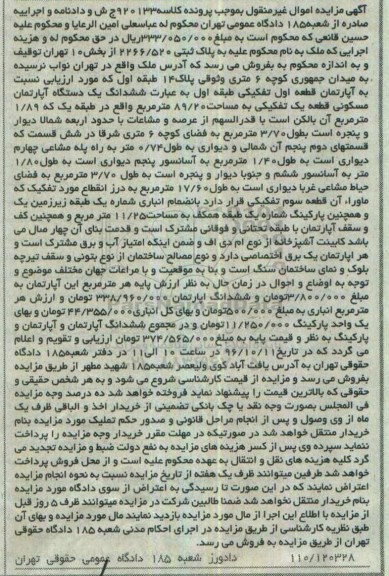 آگهی مزایده اموال غیرمنقول بموجب پرونده کلاسه۹۲۰۱۳۳ج ش و دادنامه و اجراییه
صادره از شعبه۱۸۵ دادگاه عمومی تهران محکوم له عباسعلی امین الرعایا و محکوم علیه
حسین قانعی که محکوم است به مبلغ۳۳۳/۰۵۰/۰۰۰ریال در حق محکوم له و هزینه
اجرایی که ملک به نام محکوم علیه به پلاک ثبتی ۲۲۶۶/۵۲۰ از بخش۱۰ تهران توقیف
و به اندازه محکوم به بفروش می رسد که آدرس ملک واقع در تهران نواب نرسیده
به میدان جمهوری کوچه ۶ متری وثوقی پلاک۱۴ طبقه اول که مورد ارزیابی نسبت
به آپارتمان قطعه اول تفکیکی طبقه اول به عبارت ششدانگ یک دستگاه آپارتمان
مسکونی قطعه یک تفکیکی به مساحت۸۹/۲۰ مترمربع واقع در طبقه یک که ۱/۸۹
مترمربع آن بالکن است با قدرالسهم از عرصه و مشاعات با حدود اربعه شمالا دیوار
و پنجره است بطول۳/۷۰ مترمربع به فضای کوچه ۶ متری شرقا در شش قسمت که
قسمتهای دوم پنجم آن شمالی و دیواری به طول۰/۷۴ متر به راه پله مشاعی چهارم
دیواری است به طول۱/۴۰ مترمربع به آسانسور پنجم دیواری است به طول۱/۸۰
متر به آسانسور ششم و جنوبا دیوار و پنجره است به طول ۳/۷۰ مترمربع به فضای
حیاط مشاعی غربا دیواری است به طول۱۷/۶۰ مترمربع به درز انقطاع مورد تفکیک که
ماوراء آن قطعه سوم تفکیکی قرار دارد بانضمام انباری شماره یک طبقه زیرزمین یک
و همچنین پارکینگ شماره یک طبقه همکف به مساحت۱۱/۲۵ متر مربع و همچنین کف
و سقف آپارتمان با طبقه تحتانی و فوقانی مشترک است و قدمت بنای آن چهار سال می
باشد کابینت آشپزخانه از نوع ام دی اف و ضمن اینکه امتیاز آب و برق مشترک است و
هر اپارتمان یک برق اختصاصی دارد و نوع مصالح ساختمان از نوع بتونی و سقف تیرچه
بلوک و نمای ساختمان سنگ است و بنا به موقعیت و با مراعات جهان مختلف موضوع و
توجه به اوضاع و احوال در زمان حال به نظر ارزش پایه هر مترمربع این آپارتمان به
مبلغ ۳/۸۰۰/۰۰۰تومان و ششدانگ اپارتمان ۳۳۸/۹۶۰/۰۰۰ تومان و ارزش هر
مترمربع انباری به مبلغ۵۰۰/۰۰۰تومان و بهای کل انباری تومان و بهای
یک واحد پارکینگ ۱۱/۲۵۰/۰۰۰تومان و در مجموع ششدانگ آپارتمان و آپارتمان و
پارکینگ به نظر و قیمت پایه به مبلغ ۳۷۴/۵۶۵/۰۰۰ تومان ارزیابی و تقویم و اعلام
می گردد که در تاریخ۹۶/۱۰/۱۱ در ساعت ۱۰ الی۱۱ در دفتر شعبه۱۸۵ دادگاه
حقوقی تهران به آدرس یافت آباد کوی ولیعصر شعبه۱۸۵ شهید مطهر از طریق مزایده
بفروش می رسد و مزایده از قیمت کارشناسی شروع می شود و به هر شخص حقیقی و
حقوقی که بالاترین قیمت را پیشنهاد نماید فروخته خواهد شد ده درصد وجه مزایده
فی المجلس بصورت وجه نقد یا چک بانکی تضمینی از خریدار اخذ و الباقی ظرف یک
ماه از وی وصول و پس از انجام مراحل قانونی و صدور حکم تملیک مورد مزایده بنام
خریدار منتقل خواهد شد در صورتیکه در مهلت مقرر خریدار وجه مزایده را پرداخت
ننماید سپرده وی پس از کسر هزینه های مزایده به نفع دولت ضبط و مزایده تجدید می
گردد کلیه هزینه های نقل و انتقال به عهده محکوم علیه است و از محل فروش پرداخت
خواهد شد طرفین میتوانند ظرف یک هفته از تاریخ مزایده نسبت به نحوه انجام مزایده
اعتراض نمایند که در این صورت تا رسیدگی به اعتراض از سوی دادگاه مورد مزایده
بنام خریدار منتقل نخواهد شد ضمنا طالبین شرکت در مزایده میتوانند ظرف ۵ روز قبل
از مزایده با اطلاع این اجرا از مال مورد مزایده بازدید نمایند مال مورد مزایده و بهای آن
طبق نظریه کارشناسی از طریق مزایده در اجرای احکام مدنی شعبه ۱۸۵ دادگاه حقوقی
تهران از طریق مزایده به فروش می رسد.
۱۱۰/۱۲۰۳۲۸ دادورز شعبه ۱۸۵ دادگاه عمومی حقوقی تهران